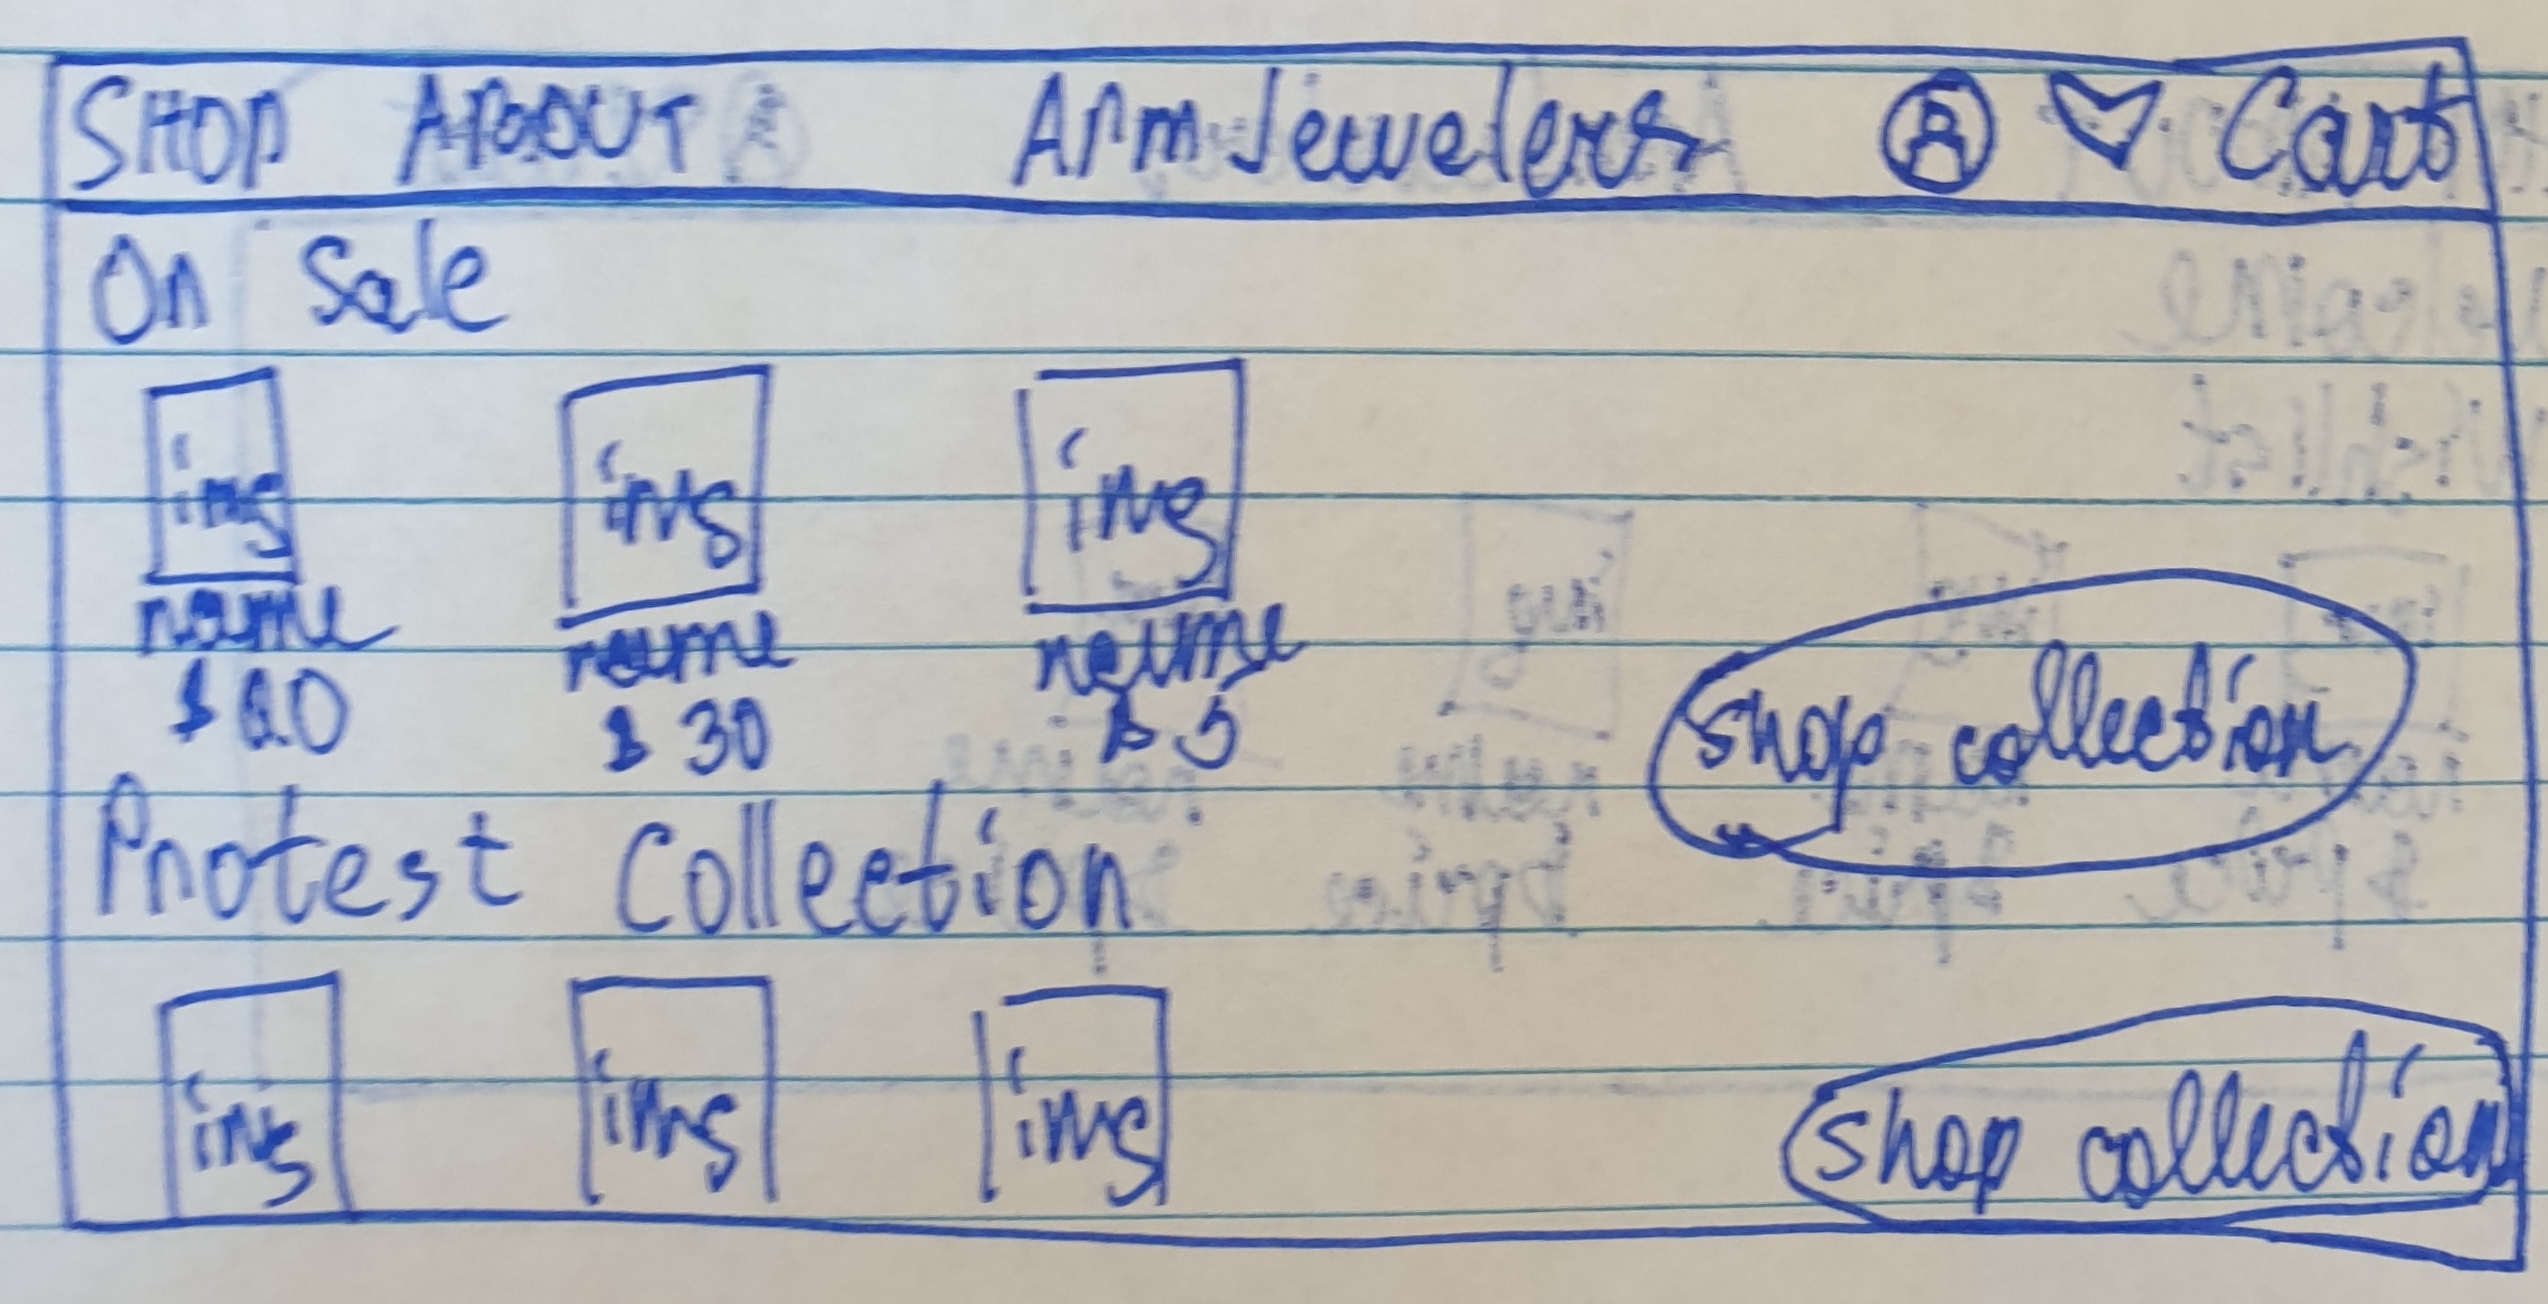 SHOP ABOUT ArmJewelers Cart
On Sale
img img img
name name name
$ 30 $ 5
shop collection
Protest Collection
img img img
shop collection